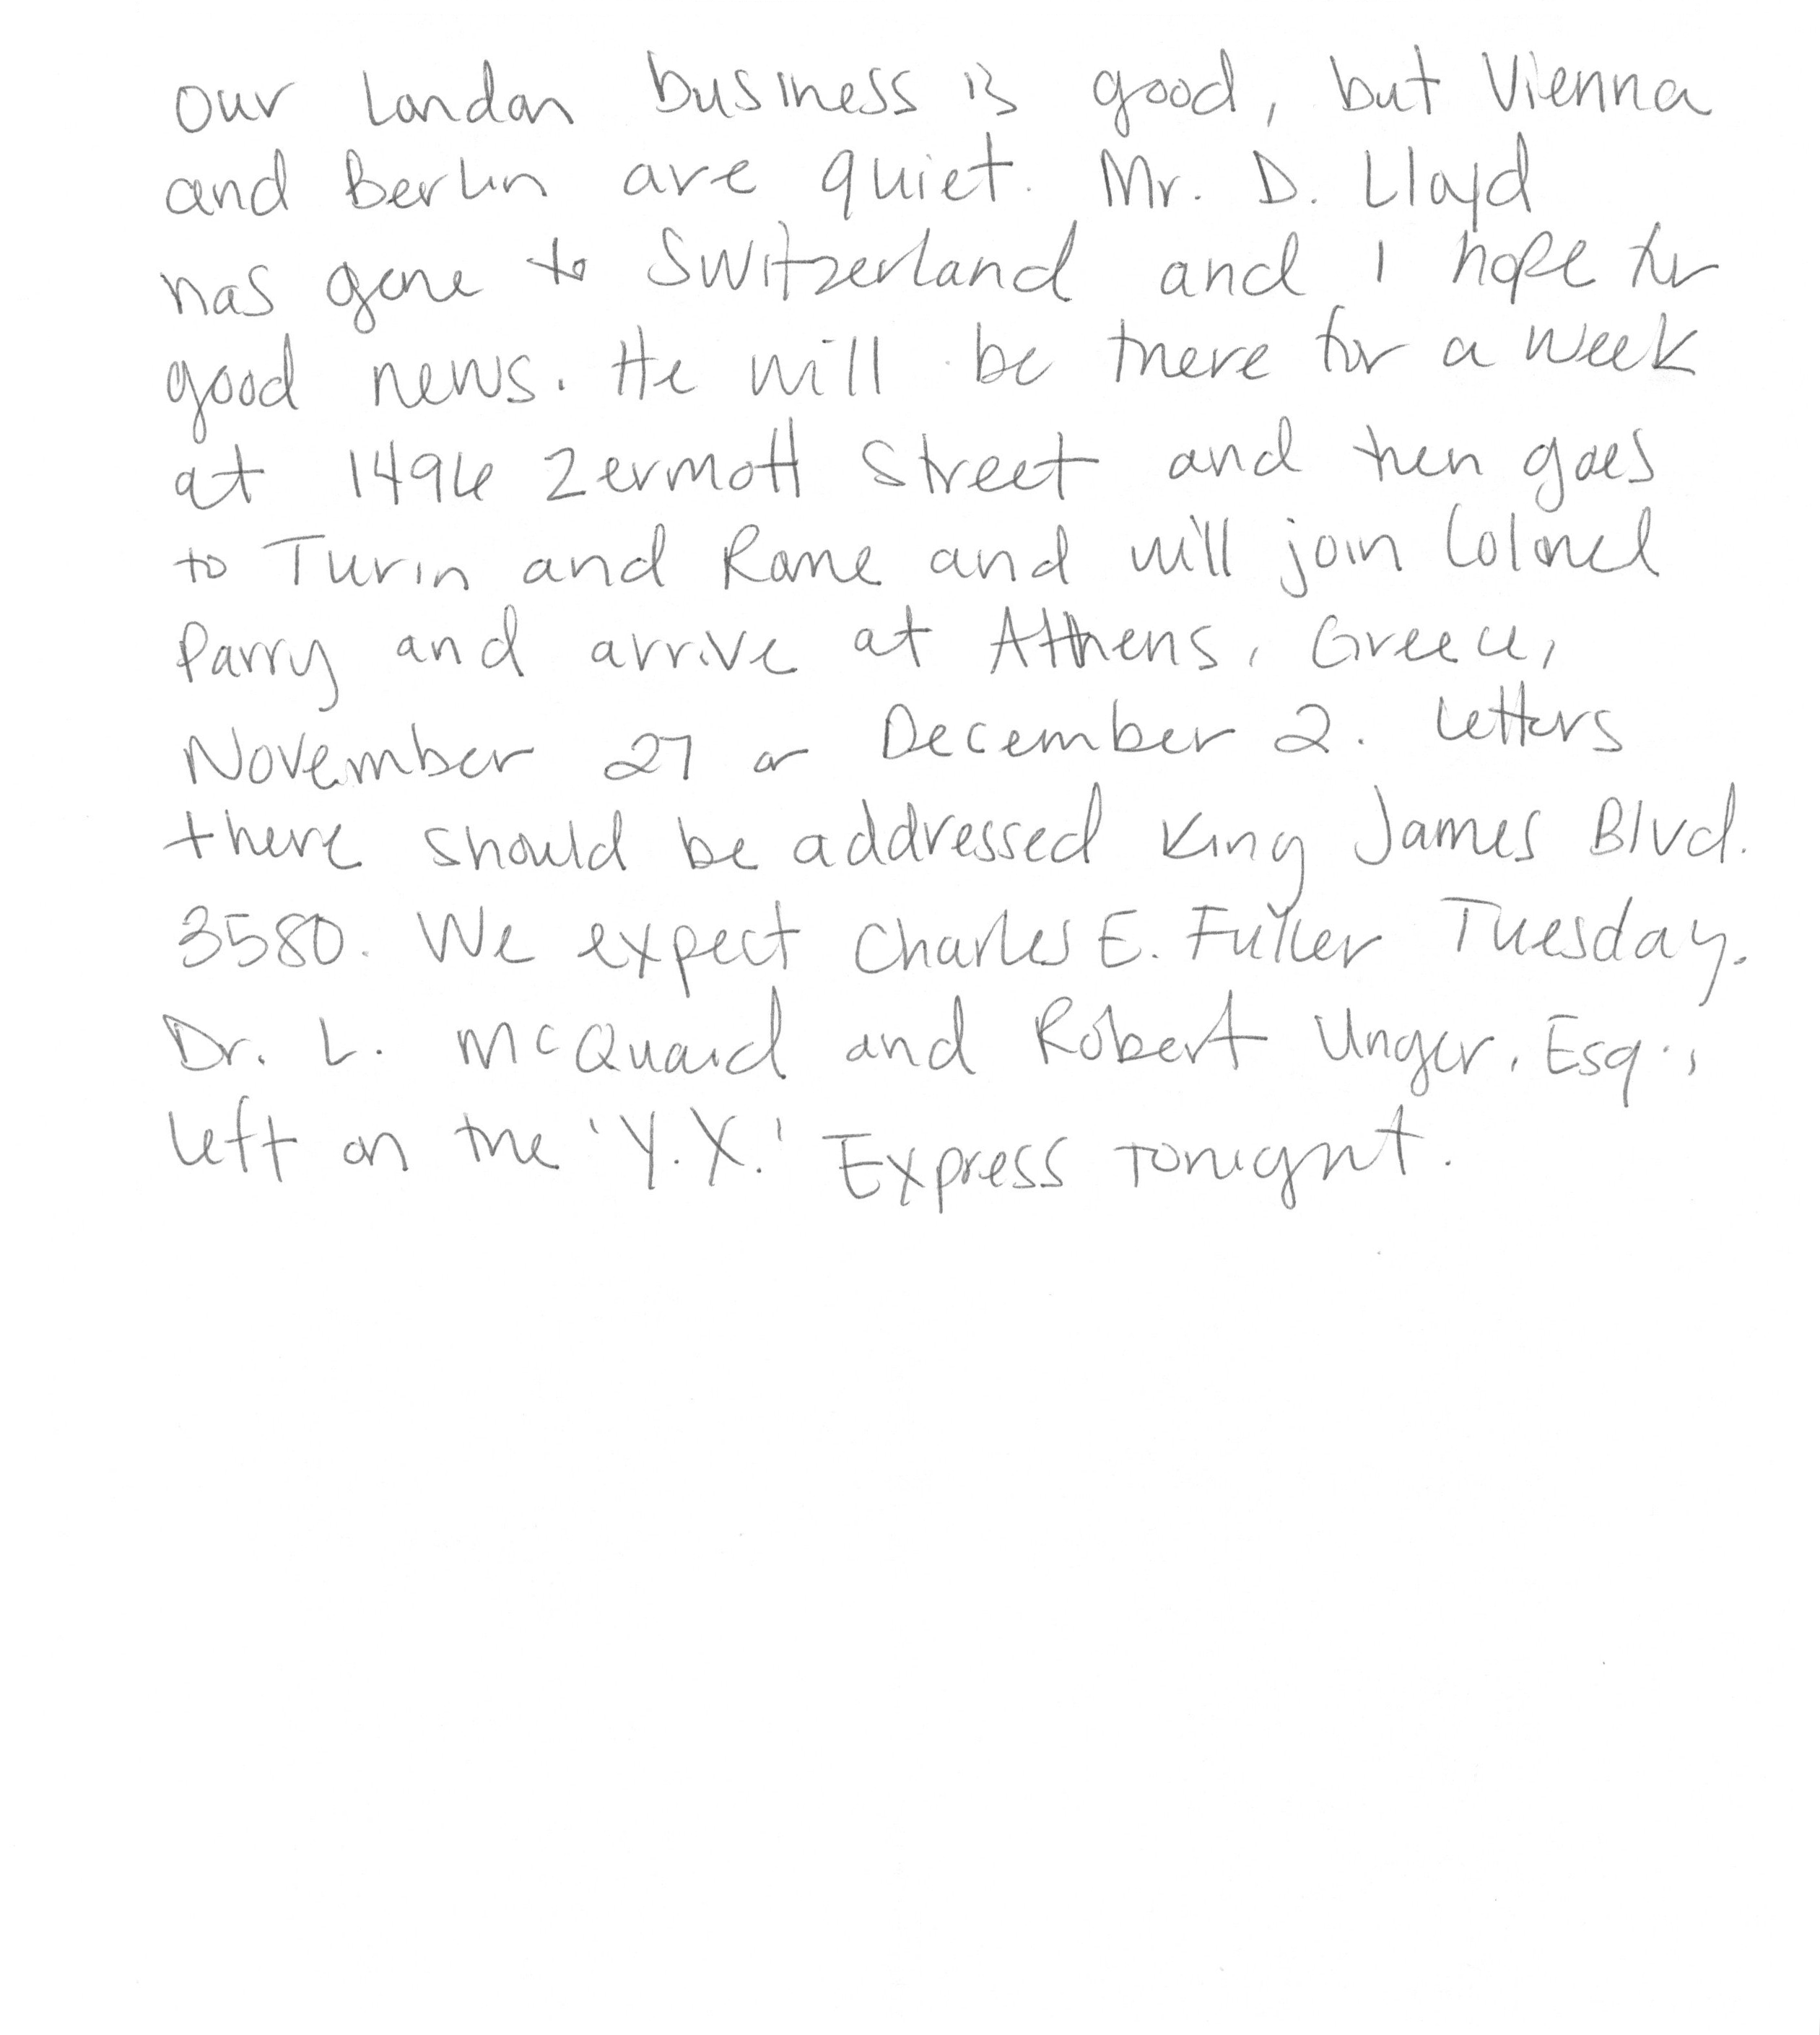 Our London business is good, but Vienna
and Berlin are quiet. Mr. D. Lloyd
has gone to Switzerland and I hope for
good news. He will be there for a week
at 1496 Zermott Street and then goes
to Turin and Rome and will join Colonel
Parry and arrive at Athens, Greece,
November 27 or December 2. Letters
there should be addressed King James Blvd.
3580. We expect Charles E. Fuller Tuesday.
Dr. L. McQuaid and Robert Unger, Esq.,
left on the 'Y.X.' Express tonight.